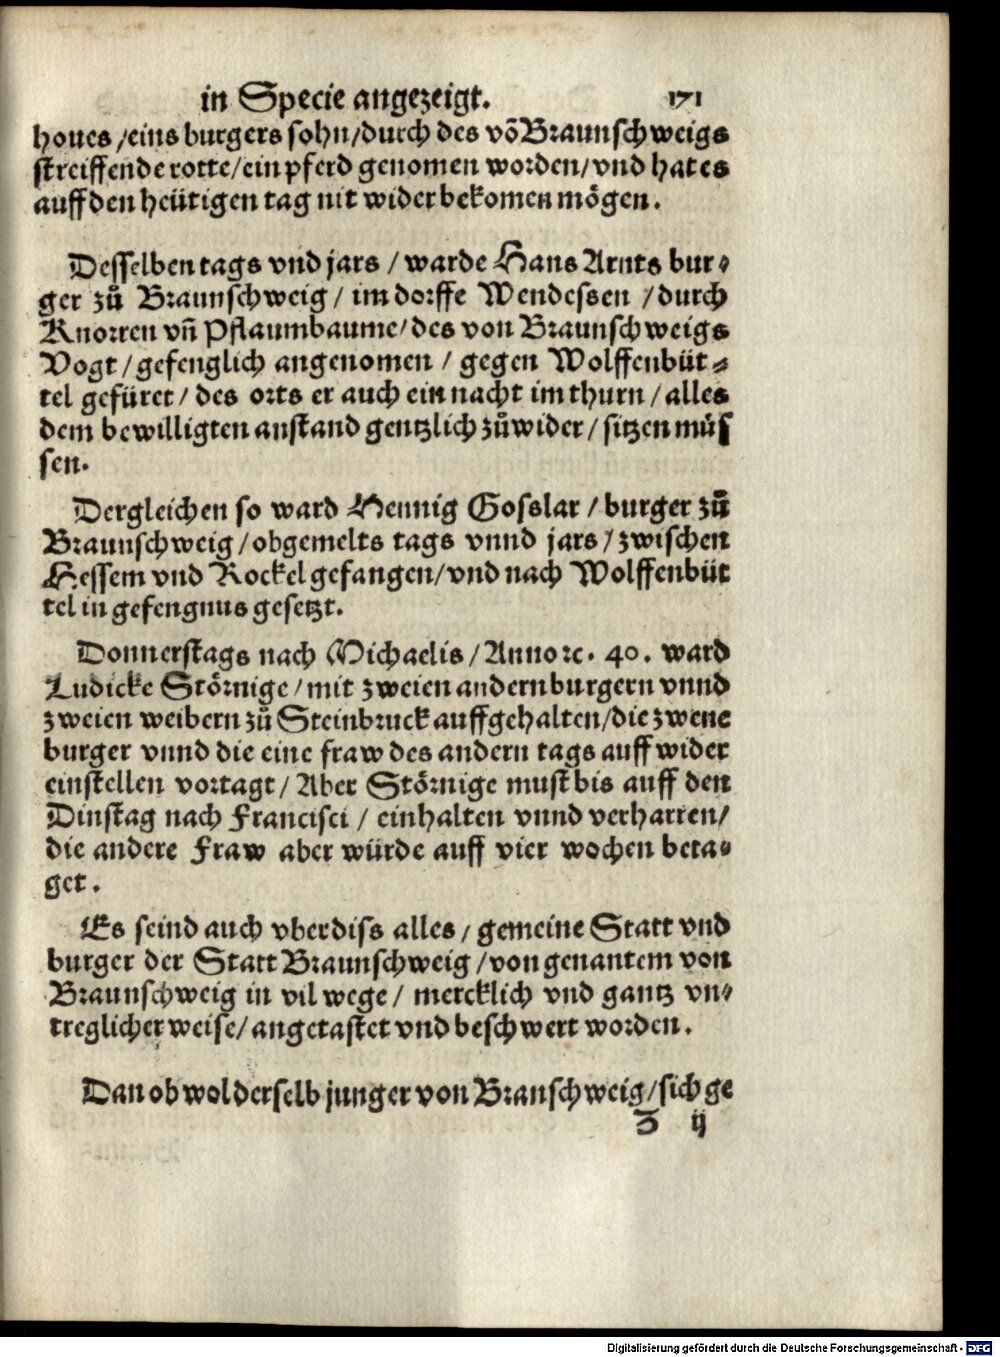 in Specie angezeigt. 171
houes /eins burgers sohn/durch des võ Braunschweigs
streiffende rotte/ein pferd genomen worden/vnd hat es
auff den heütigen tag nit wider bekomen mögen.
Desselben tags vnd jars / warde Hans Arnts bur⸗
ger zů Braunschweig / im dorffe Wendessen /durch
Knorren vñ Pflaumbaume/des von Braunschweigs
Vogt /gefenglich angenomen / gegen Wolffenbüt⸗
tel gefüret / des orts er auch ein nacht im thurn / alles
dem bewilligten anstand gentzlich zůwider / sitzen müs
sen.
Dergleichen so ward Hennig Gosslar / burger zů
Braunschweig /obgemelts tags vnnd jars / zwischen
Hessem vnd Rockel gefangen/vnd nach Wolffenbüt
tel in gefengnus gesetzt.
Donnerstags nach Michaelis /Anno ꝛc. 40. ward
Ludicke Störnige /mit zweien andern burgern vnnd
zweien weibern zů Steinbruck auffgehalten/die zwene
burger vnnd die eine fraw des andern tags auff wider
einstellen vortagt / Aber Störnige must bis auff den
Dinstag nach Francisci / einhalten vnnd verharren/
die andere Fraw aber würde auff vier wochen beta⸗
get.
Es seind auch vberdiss alles / gemeine Statt vnd
burger der Statt Braunschweig /von genantem von
Braunschweig in vil wege / mercklich vnd gantz vn⸗
treglicher weise/ angetastet vnd beschwert worden.
Dan ob wol derselb junger von Branschweig/sich ge
Z ij
Digitalisierung gefördert durch die Deutsche Forschungsgemeinschaft - DFG